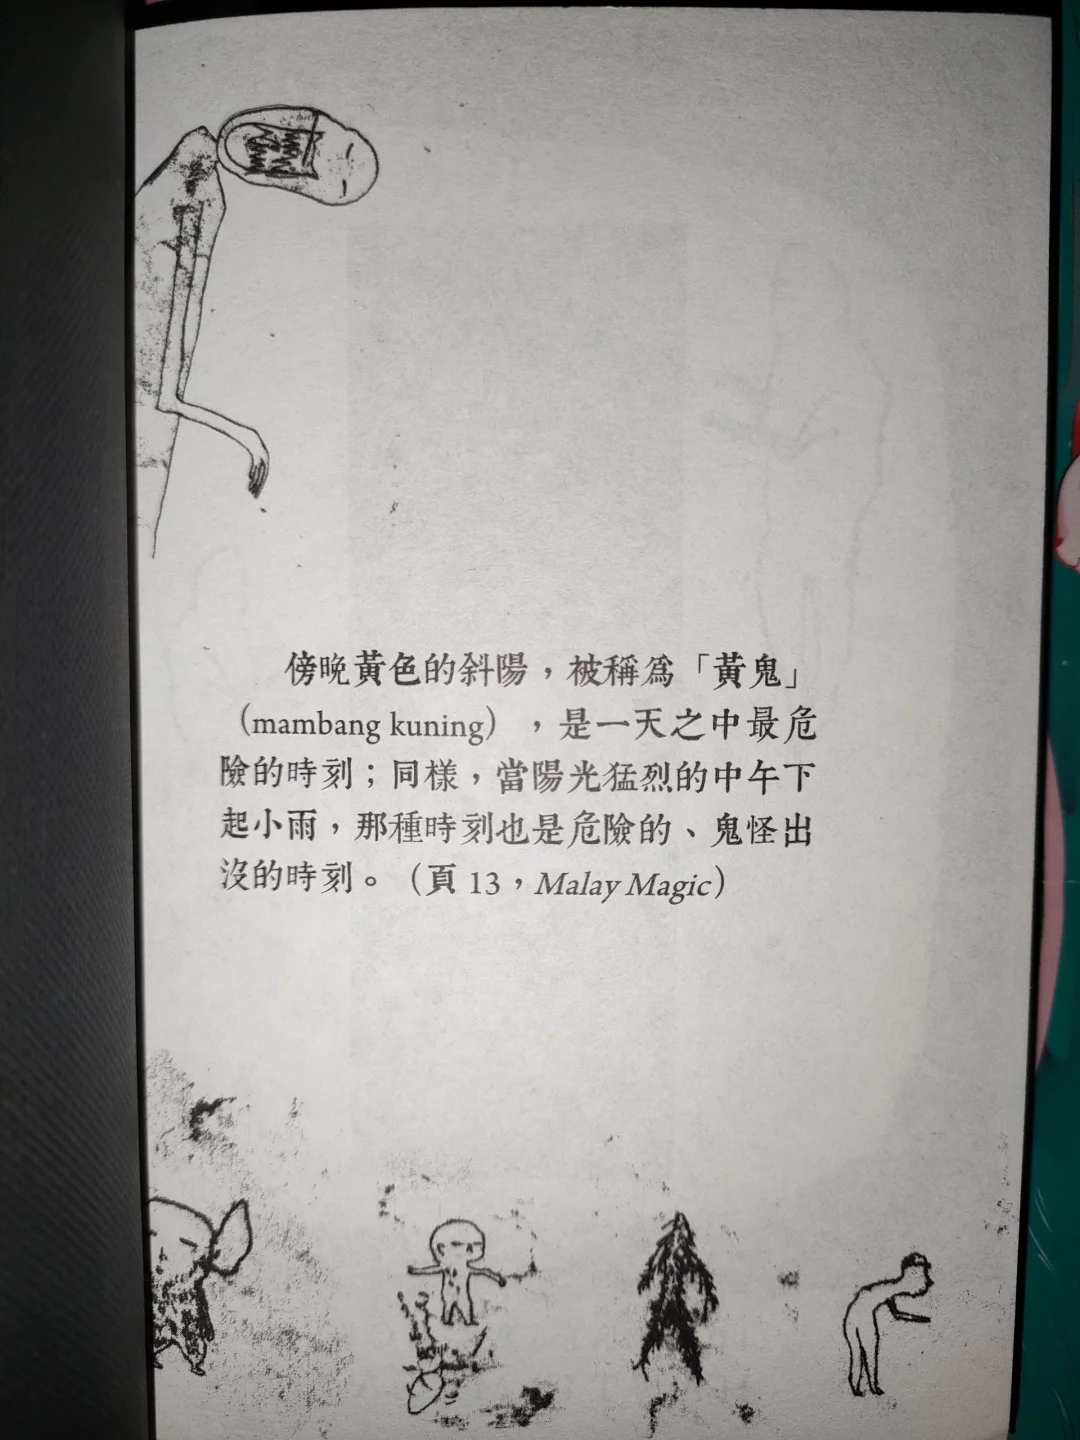 傍晚黃色的斜陽，被稱爲「黃鬼」
（mambang kuning），是一天之中最危
險的時刻；同樣，當陽光猛烈的中午下
起小雨，那種時刻也是危險的、鬼怪出
沒的時刻。（頁 13，Malay Magic）